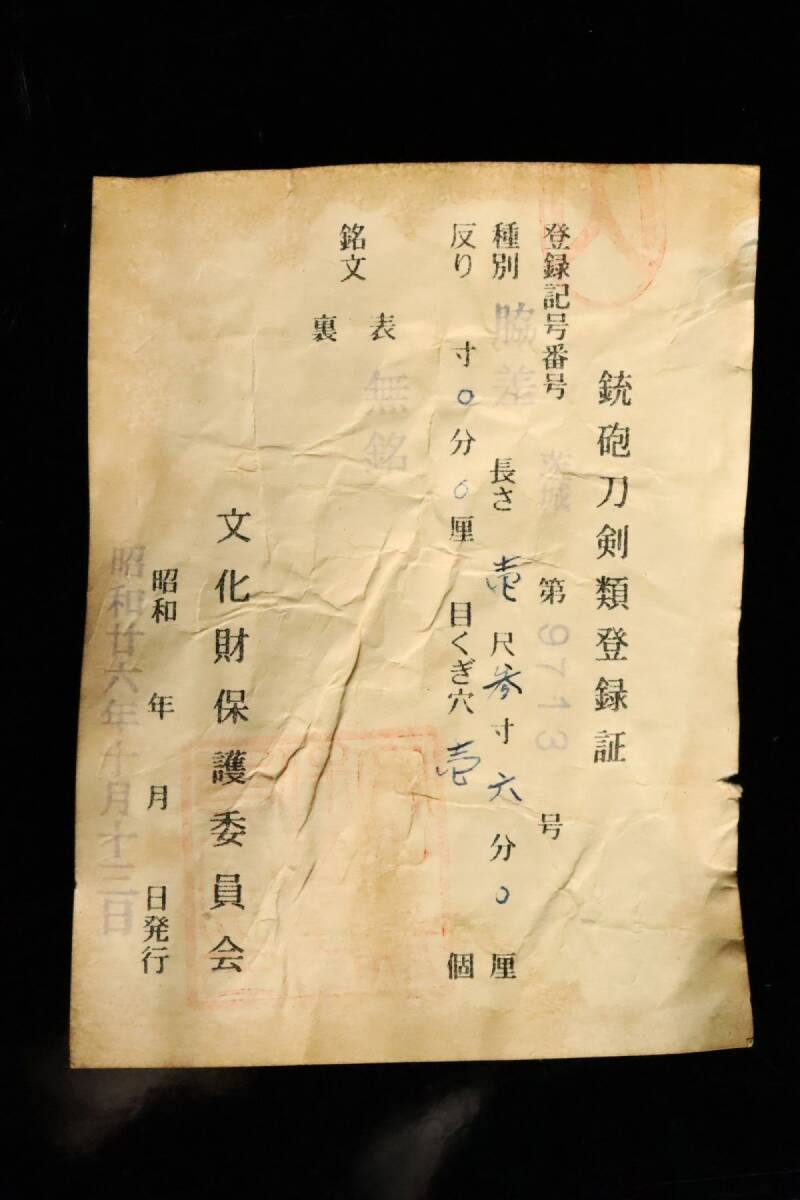 銃砲刀剣類登録証
登録記号番号 茨城 第 9713 号
種別 脇差 長さ 壱尺参寸六分0厘
反り 寸0分6厘 目くぎ穴 壱 個
銘文 表 無銘
裏
文化財保護委員会
昭和 年 月 日発行
昭和廿六年十月十三日